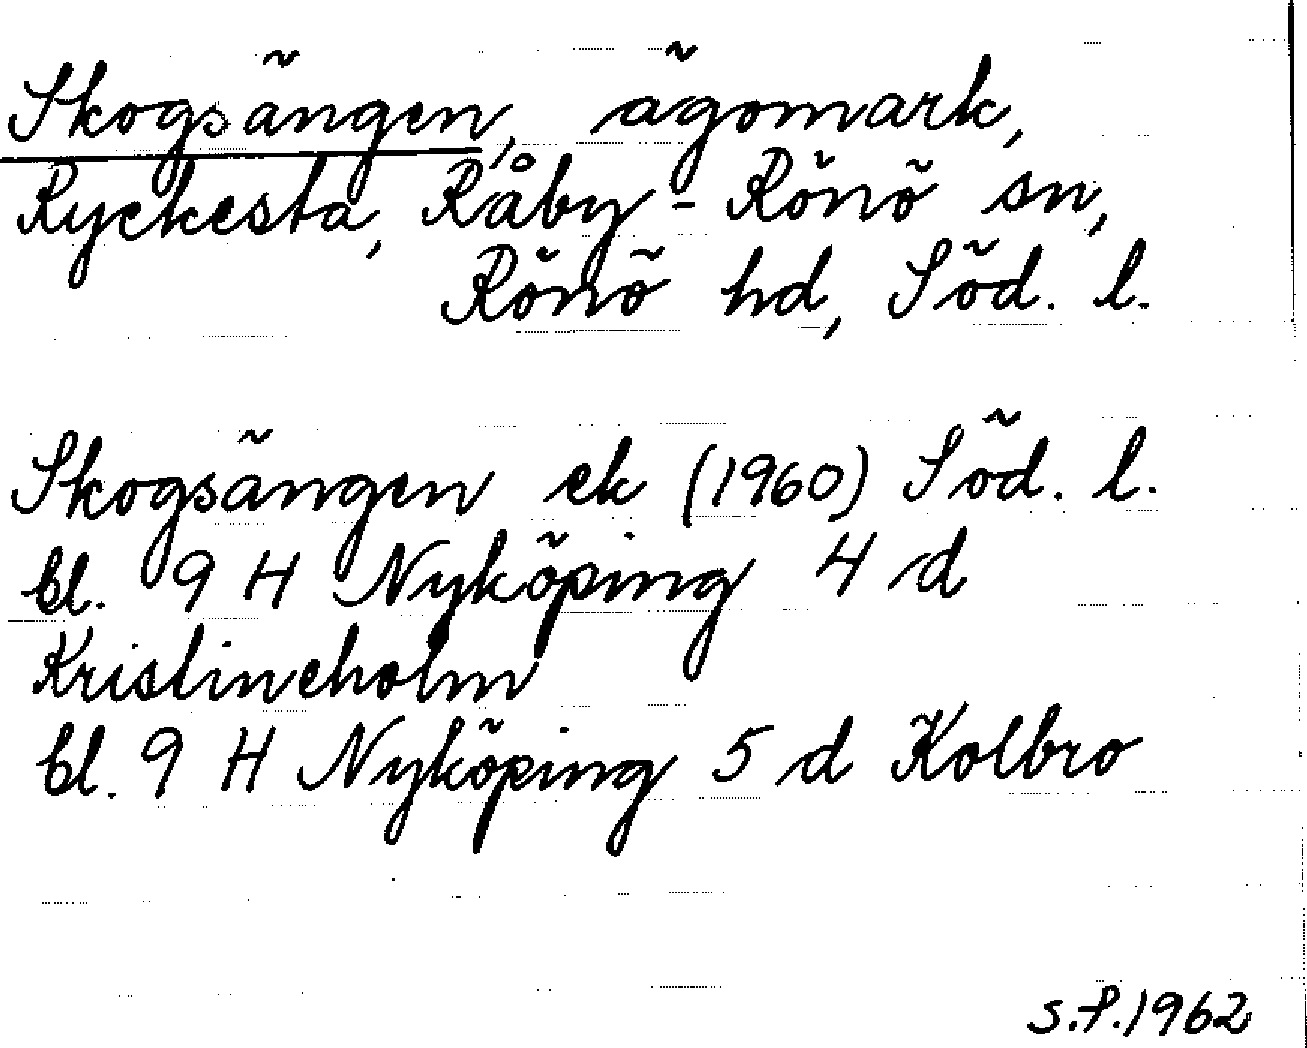 Skogsängen, ägomark,
Ryckesta, Råby-Rönö sn,
Rönö hd, Söd. l.
Skogsängen ek (1960) Söd. l.
bl. 9 H Nyköping 4 d
Kristineholm
bl. 9 H Nyköping 5 d Kolbro
s.f.1962